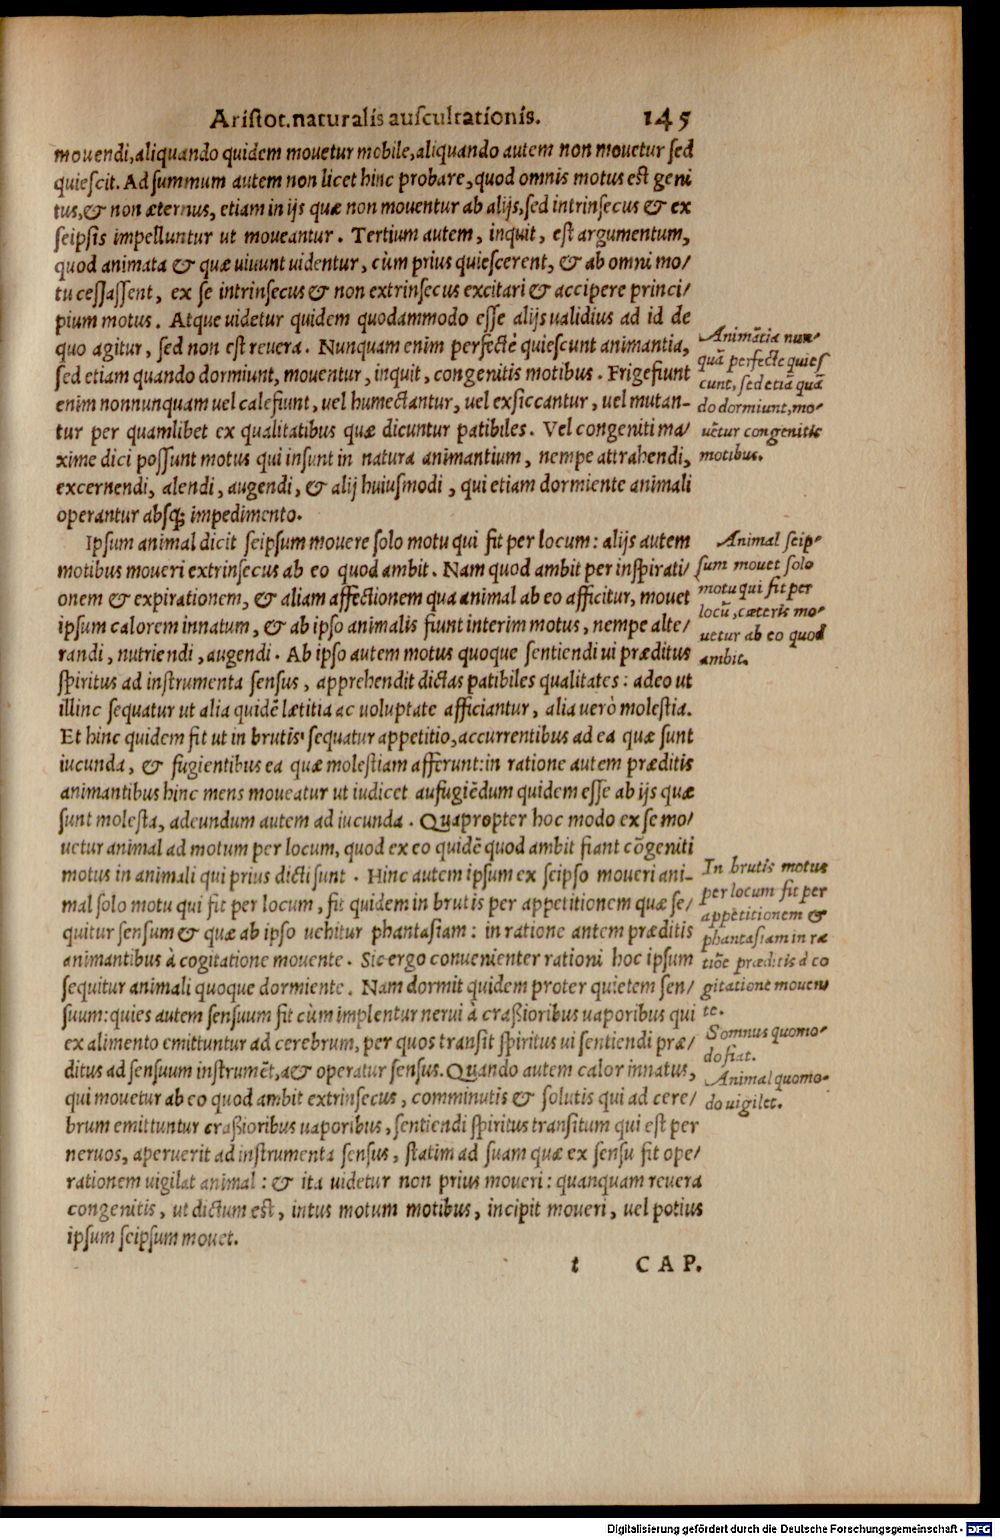 Aristot. naturalis auscultationis. 145
mouendi, aliquando quidem mouetur mobile, aliquando autem non mouetur sed
quiescit. Ad summum autem non licet hinc probare, quod omnis motus est geni
tus, & non æternus, etiam in ijs quæ non mouentur ab alijs, sed intrinsecus & ex
seipsis impelluntur ut moueantur. Tertium autem, inquit, est argumentum,
quod animata & quæ uiuunt uidentur, cùm prius quiescerent, & ab omni mo/
tu cessassent, ex se intrinsecus & non extrinsecus excitari & accipere princi/
pium motus. Atque uidetur quidem quodammodo esse alijs ualidius ad id de
quo agitur, sed non est reuera. Nunquam enim perfectè quiescunt animantia,
sed etiam quando dormiunt, mouentur, inquit, congenitis motibus. Frigefiunt
enim nonnunquam uel calefiunt, uel humectantur, uel exsiccantur, uel mutan-
tur per quamlibet ex qualitatibus quæ dicuntur patibiles. Vel congeniti ma/
xime dici possunt motus qui insunt in natura animantium, nempe attrahendi,
excernendi, alendi, augendi, & alij huiusmodi, qui etiam dormiente animali
operantur absq; impedimento.
Animātia nun-
quā perfecte quies
cunt, sed etiā quā
do dormiunt, mo-
uētur congenitis
motibus.
Ipsum animal dicit seipsum mouere solo motu qui fit per locum: alijs autem
motibus moueri extrinsecus ab eo quod ambit. Nam quod ambit per inspirati/
onem & expirationem, & aliam affectionem qua animal ab eo afficitur, mouet
ipsum calorem innatum, & ab ipso animalis fiunt interim motus, nempe alte/
randi, nutriendi, augendi. Ab ipso autem motus quoque sentiendi ui præditus
spiritus ad instrumenta sensus, apprehendit dictas patibiles qualitates: adeo ut
illinc sequatur ut alia quidē lætitia ac uoluptate afficiantur, alia uerò molestia.
Et hinc quidem fit ut in brutis sequatur appetitio, accurrentibus ad ea quæ sunt
iucunda, & fugientibus ea quæ molestiam afferunt: in ratione autem præditis
animantibus hinc mens moueatur ut iudicet aufugiēdum quidem esse ab ijs quæ
sunt molesta, adeundum autem ad iucunda. Quapropter hoc modo ex se mo/
uetur animal ad motum per locum, quod ex eo quidē quod ambit fiant cōgeniti
motus in animali qui prius dicti sunt. Hinc autem ipsum ex seipso moueri ani-
mal solo motu qui fit per locum, fit quidem in brutis per appetitionem quæ se/
quitur sensum & quæ ab ipso uehitur phantasiam: in ratione antem præditis
animantibus à cogitatione mouente. Sic ergo conuenienter rationi hoc ipsum
sequitur animali quoque dormiente. Nam dormit quidem proter quietem sen/
suum: quies autem sensuum fit cùm implentur nerui à craßioribus uaporibus qui
ex alimento emittuntur ad cerebrum, per quos transit spiritus ui sentiendi præ/
ditus ad sensuum instrumēt,a& operatur sensus. Quando autem calor innatus,
qui mouetur ab eo quod ambit extrinsecus, comminutis & solutis qui ad cere/
brum emittuntur craßioribus uaporibus, sentiendi spiritus transitum qui est per
neruos, aperuerit ad instrumenta sensus, statim ad suam quæ ex sensu fit ope/
rationem uigilat animal: & ita uidetur non prius moueri: quanquam reuera
congenitis, ut dictum est, intus motum motibus, incipit moueri, uel potius
ipsum seipsum mouet.
Animal seip-
sum mouet solo
motu qui fit per
locū, cæteris mo-
uetur ab eo quod
ambit.
In brutis motus
per locum fit per
appetitionem &
phantasiam in ra
tiōe præditis à co
gitatione mouen
te.
Somnus quomo-
do fiat.
Animal quomo-
do uigilet.
t CAP.
Digitalisierung gefördert durch die Deutsche Forschungsgemeinschaft - DFG